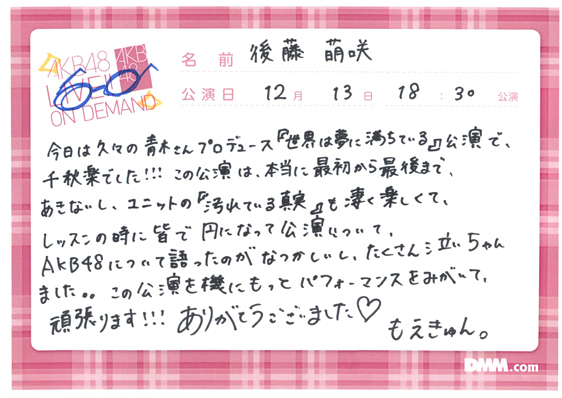 AKB48
LIVE!!
ON DEMAND
AKB
48
名前 後藤 萌咲
公演日 12月 13日 18:30 公演
今日は久々の青木さんプロデュース『世界は夢に満ちている』公演で、
千秋楽でした!!! この公演は、本当に最初から最後まで、
あきないし、ユニットの『汚れている真実』も凄く楽しくて、
レッスンの時に皆で円になって公演について、
AKB48について語ったのがなつかしいし、たくさん泣いちゃん
ました。。この公演を機にもっとパフォーマンスをみがいて、
頑張ります!!! ありがとうございました♡
もえきゅん。
DMM.com